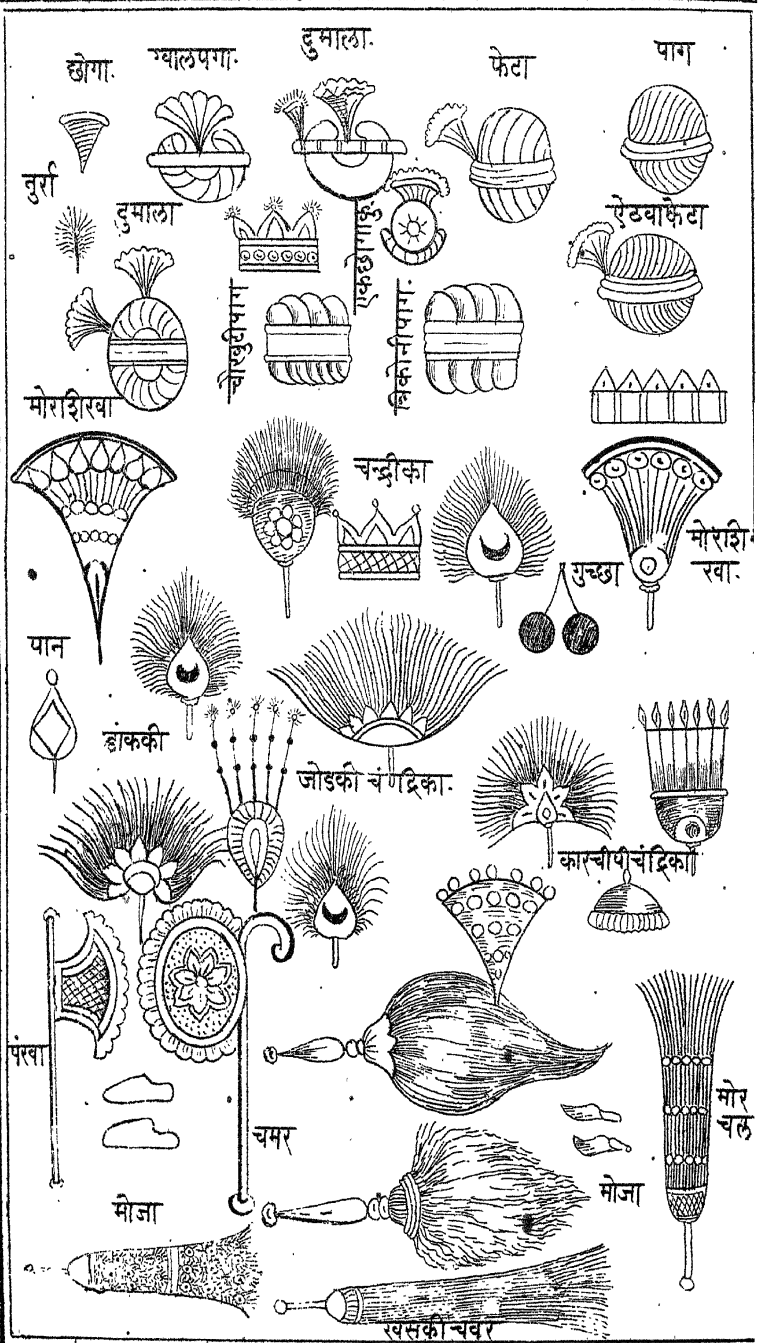 छोगा.
ग्वालपगा.
दुमाला.
फेटा
पाग
तुर्रा
दुमाला
ऐठवाफेटा
चोरवुटीपाग
त्रिकोनीपाग.
मोरशिखा
चन्द्रीका
गुच्छा
मोरशि-
खा.
पान
जोडकी चंण्द्रिका.
कारचीपीचंद्रिका
पंखा
चमर
मोर
चल
मोजा
मोजा
खसकी चवर